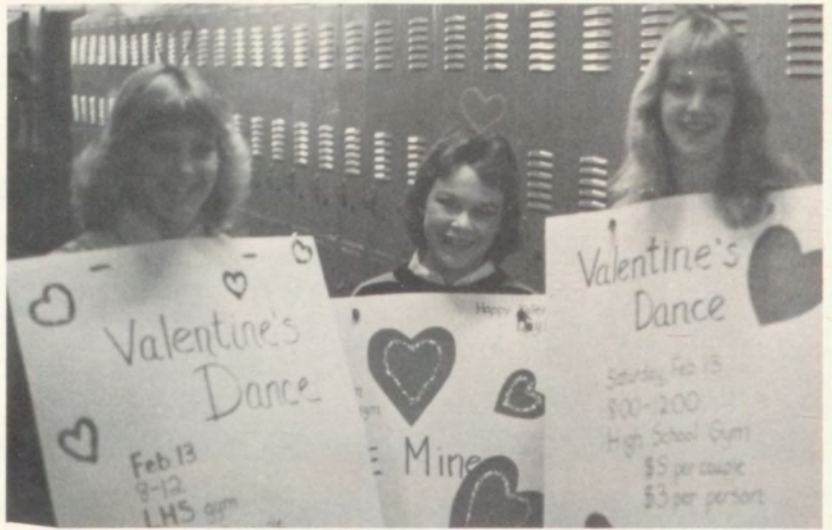 Valentine's
Dance
Feb 13
8-12
LHS gym
Happy
Day
Mine
Valentine's
Dance
Saturday, Feb 13
8:00-12:00
High School Gym
$5 per couple
$3 per person